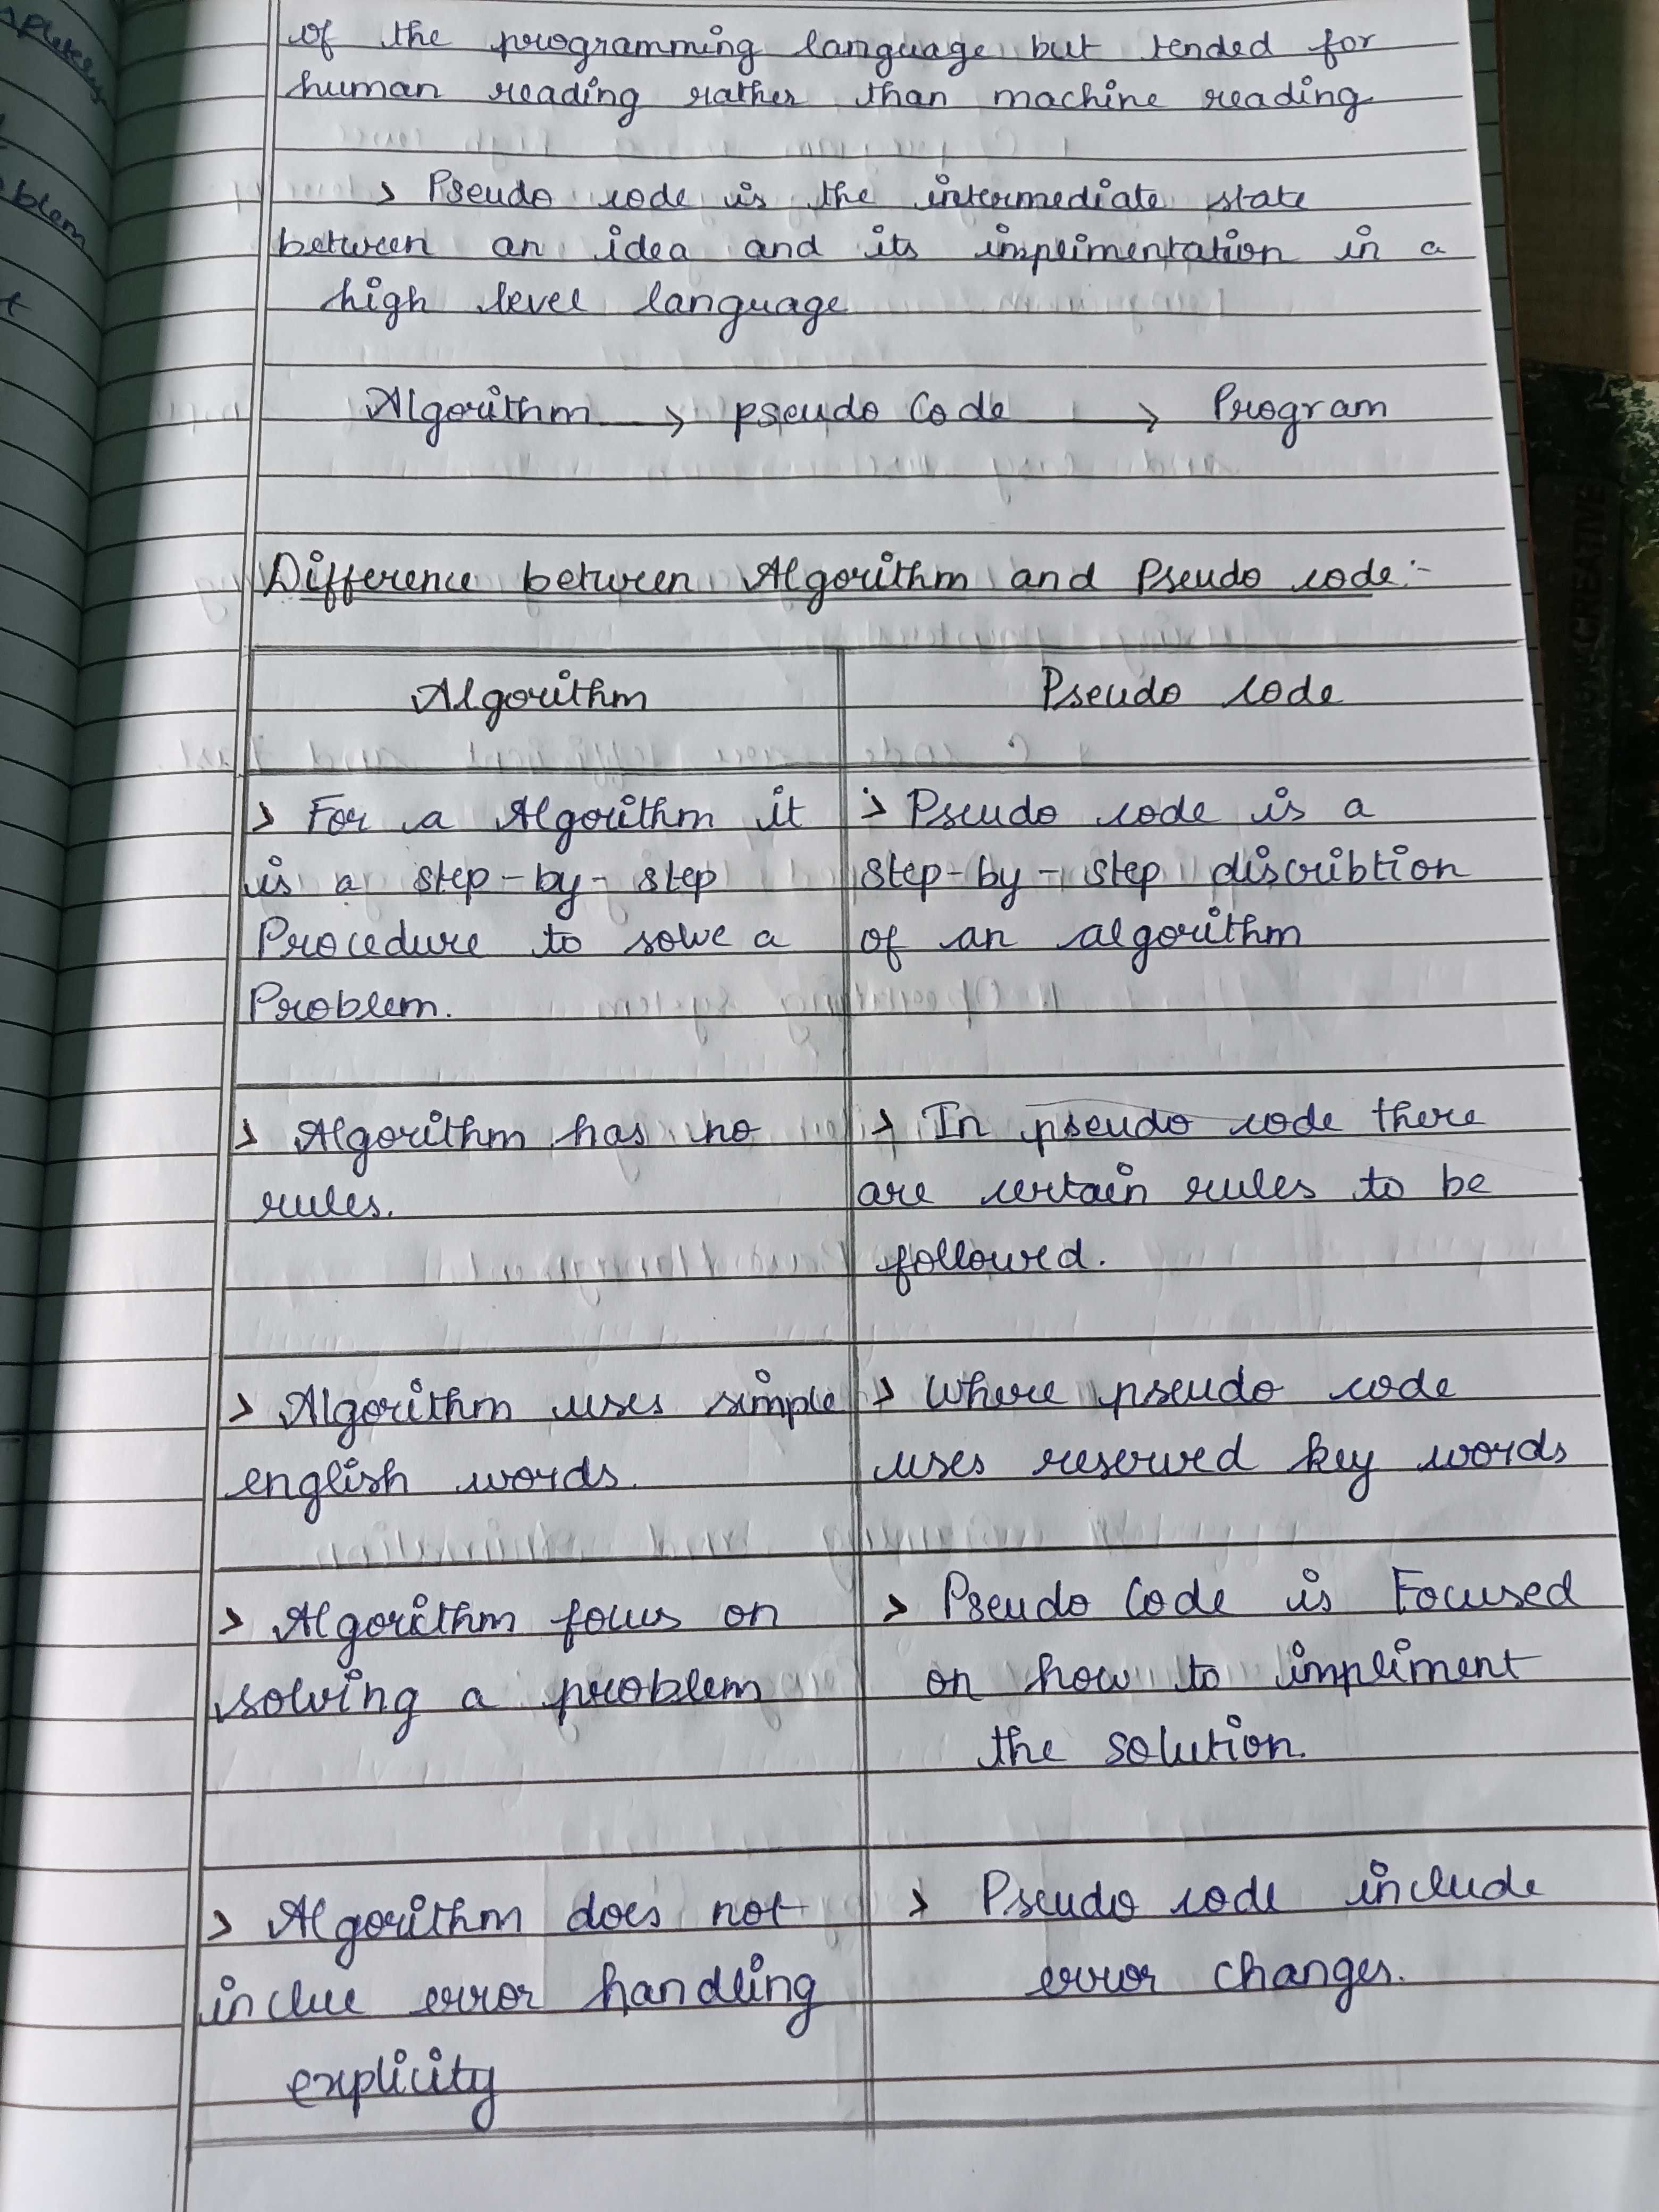 of the programming language but tended for
human reading rather than machine reading
> Pseudo code is the intermediate state
between an idea and its implimentation in a
high level language
Algorithm → pseudo Code → Program
Difference between Algorithm and Pseudo code:-
Algorithm
Pseudo code
> For a Algorithm it
is a step-by-step
Procedure to solve a
Problem.
> Pseudo code is a
step-by-step discribtion
of an algorithm
> Algorithm has no
rules.
> In pseudo code there
are certain rules to be
followed.
> Algorithm uses simple
english words.
> Where pseudo code
uses reserved key words
> Algorithm focus on
solving a problem
> Pseudo Code is Focused
on how to impliment
the solution.
> Algorithm does not
inclue error handling
explicity
> Pseudo code include
error changes.
blem
CREATIVE